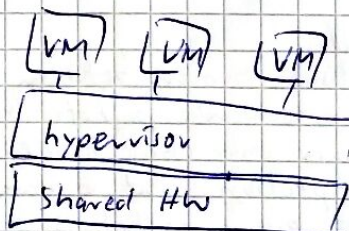 VM VM VM
hypervisor
Shared HW